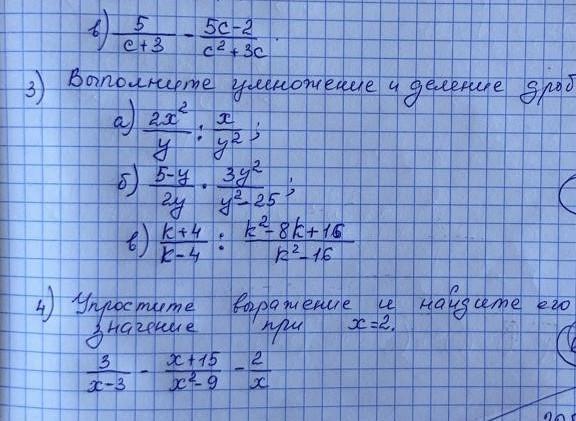 в) 5/(c+3) - (5c-2)/(c²+3c)
3) Выполните умножение и деление дроб
а) 2x²/y : x/y²;
б) (5-y)/2y · 3y²/(y²-25);
в) (k+4)/(k-4) : (k²-8k+16)/(k²-16)
4) Упростите выражение и найдите его
значение при x=2.
3/(x-3) - (x+15)/(x²-9) - 2/x